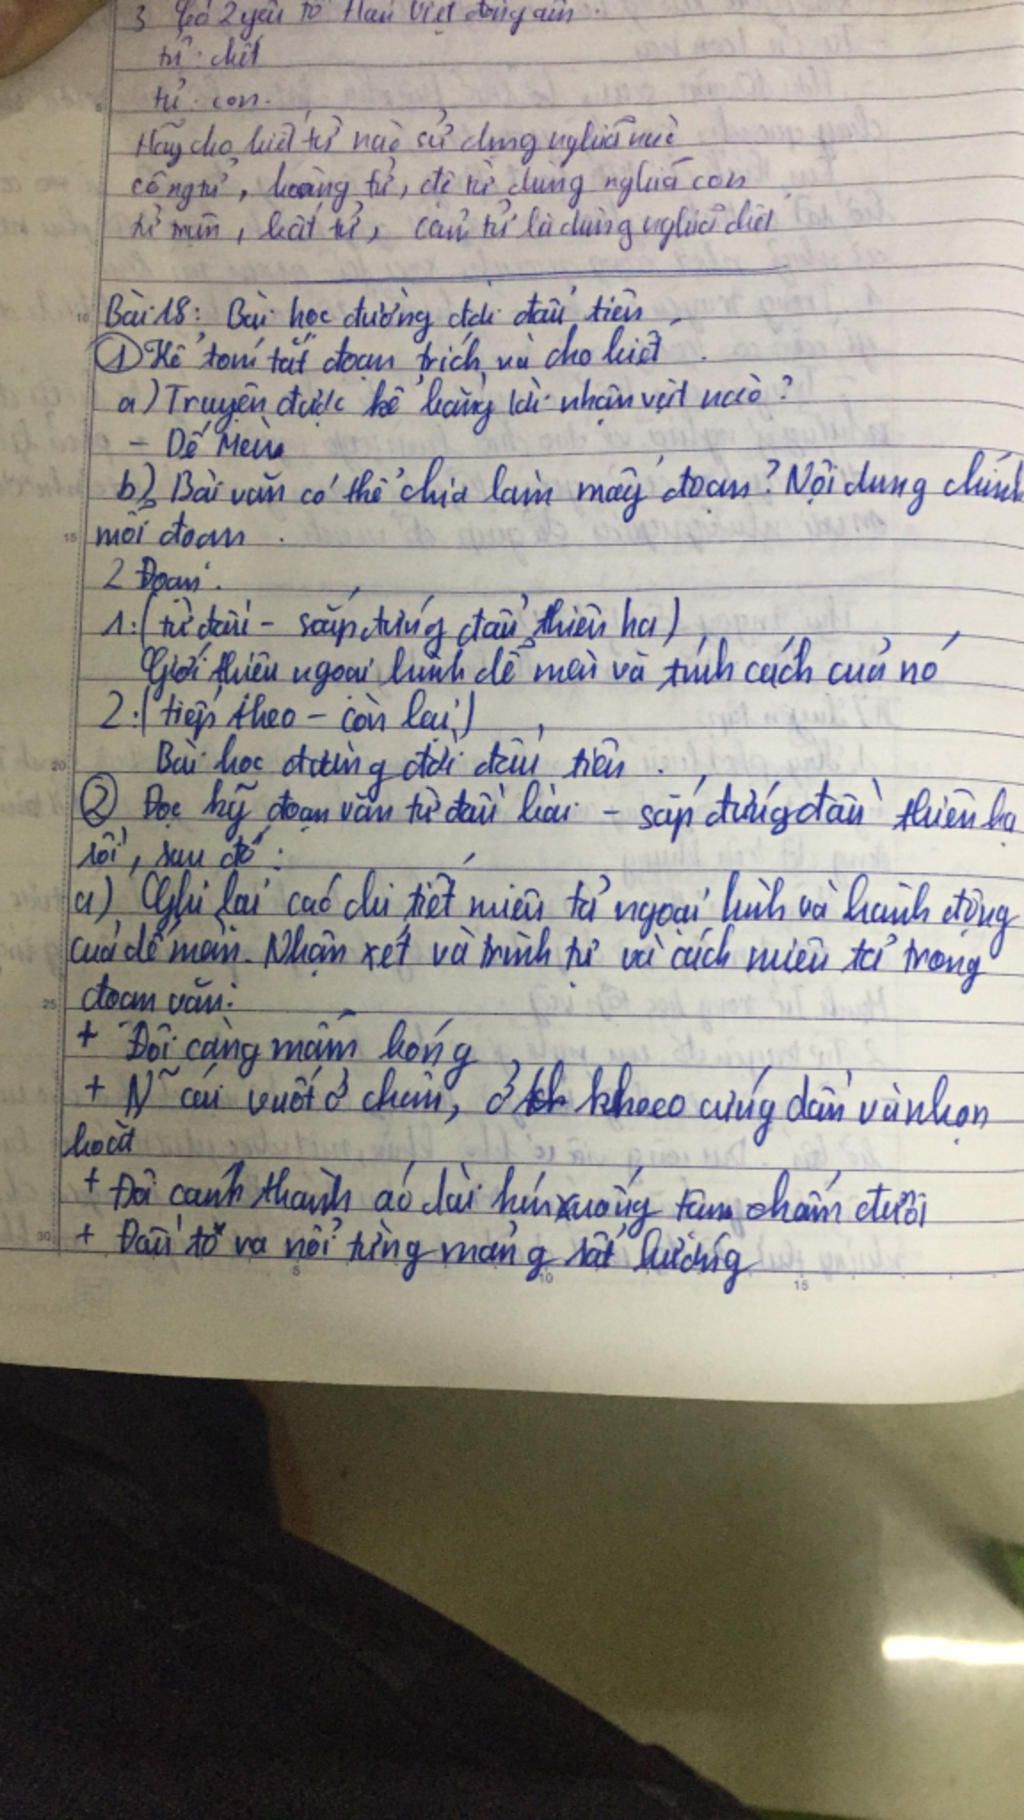 3 Có 2 yếu tố Hán Việt đồng âm.
tử: chết
tử: con.
Hãy cho biết từ nào sử dụng nghĩa nào
công tử, hoàng tử, đệ tử dùng nghĩa con
tử mìn, bất tử, cảm tử là dùng nghĩa chết
Bài 18: Bài học đường đời đầu tiên
① Kể tóm tắt đoạn trích và cho biết.
a) Truyện được kể bằng lời nhân vật nào?
- Dế Mèn
b) Bài văn có thể chia làm mấy đoạn? Nội dung chính
mỗi đoạn.
2 Đoạn.
1: (từ đầu - sắp đứng đầu thiên hạ)
Giới thiệu ngoại hình dế mèn và tính cách của nó
2: (tiếp theo - còn lại)
Bài học đường đời đầu tiên.
② Đọc kỹ đoạn văn từ đầu bài - sắp đứng đầu thiên hạ
rồi, sau đó:
a) Ghi lại các chi tiết miêu tả ngoại hình và hành động
của dế mèn. Nhận xét và trình tự và cách miêu tả trong
đoạn văn:
+ Đôi càng mẫm bóng
+ N~ cái vuốt ở chân, ở khoeo cứng dần và nhọn
hoắt
+ Đôi cánh thành áo dài kín xuống tận chấm đuôi
+ Đầu to va nổi từng mảng rất bướng